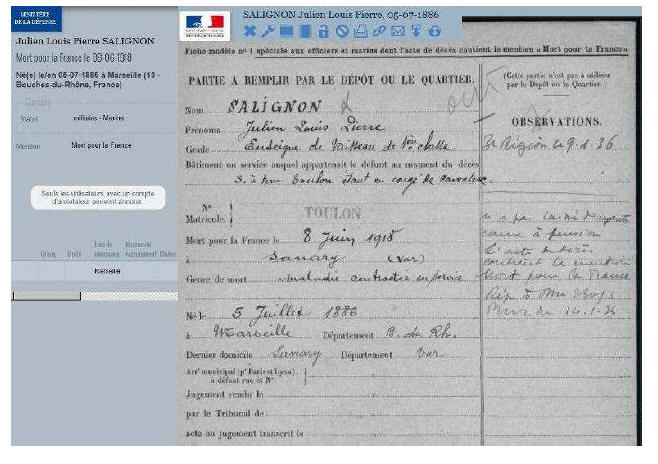 MINISTÈRE
DE LA DÉFENSE
Julien Louis Pierre SALIGNON
Mort pour la France le 08-06-1918
Né(e) le/en 05-07-1886 à Marseille (13 -
Bouches-du-Rhône, France)
Statut militaire - Marine
Mention Mort pour la France
Seuls les utilisateurs avec un compte
d'annotateur peuvent annoter.
Grade Unité Classe
Marseille
SALIGNON Julien Louis Pierre, 05-07-1886
Fiche modèle n° 1 spéciale aux officiers et marins dont l'acte de décès contient la mention « Mort pour la France »
PARTIE A REMPLIR PAR LE DÉPÔT OU LE QUARTIER.
Nom SALIGNON
Prénoms Julien Louis Pierre
Grade Enseigne de Vaisseau de 1ère classe
Bâtiment ou service auquel appartenait le défunt au moment du décès
S. à terre Toulon étant en congé de
N°
Matricule.
TOULON
Mort pour la France le 8 Juin 1918
à Sanary (Var)
Genre de mort maladie contractée en service
Né le 5 Juillet 1886
à Marseille Département B. du Rh.
Dernier domicile Sanary Département Var
Arrt municipal (pr Paris et Lyon),
à défaut rue et N°
Jugement rendu le
par le Tribunal de
acte ou jugement transcrit le
oui
(Cette partie n'est pas à utiliser
par le Dépôt ou le Quartier.)
OBSERVATIONS.
Région 9-1-36
n'a pas
à pension
L'acte de décès
contient la mention
Mort pour la France
14-1-36